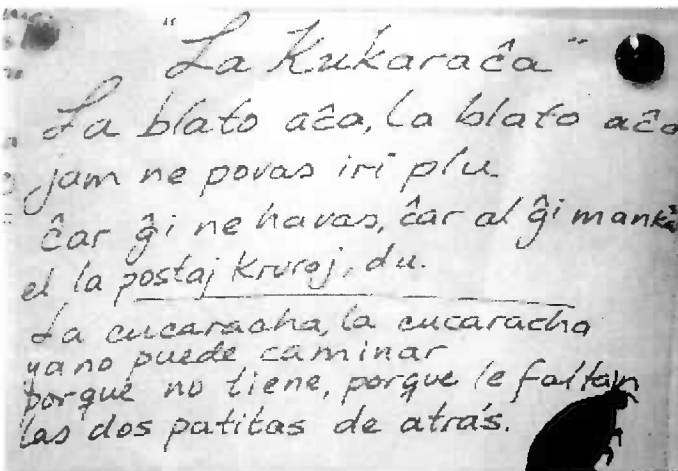 "La Kukaraĉa"
La blato aĉa, La blato aĉa
jam ne povas iri plu
ĉar ĝi ne havas, ĉar al ĝi mankas
el la postaj kruroj, du.
La cucaracha, la cucaracha
ya no puede caminar
porque no tiene, porque le faltan
las dos patitas de atrás.